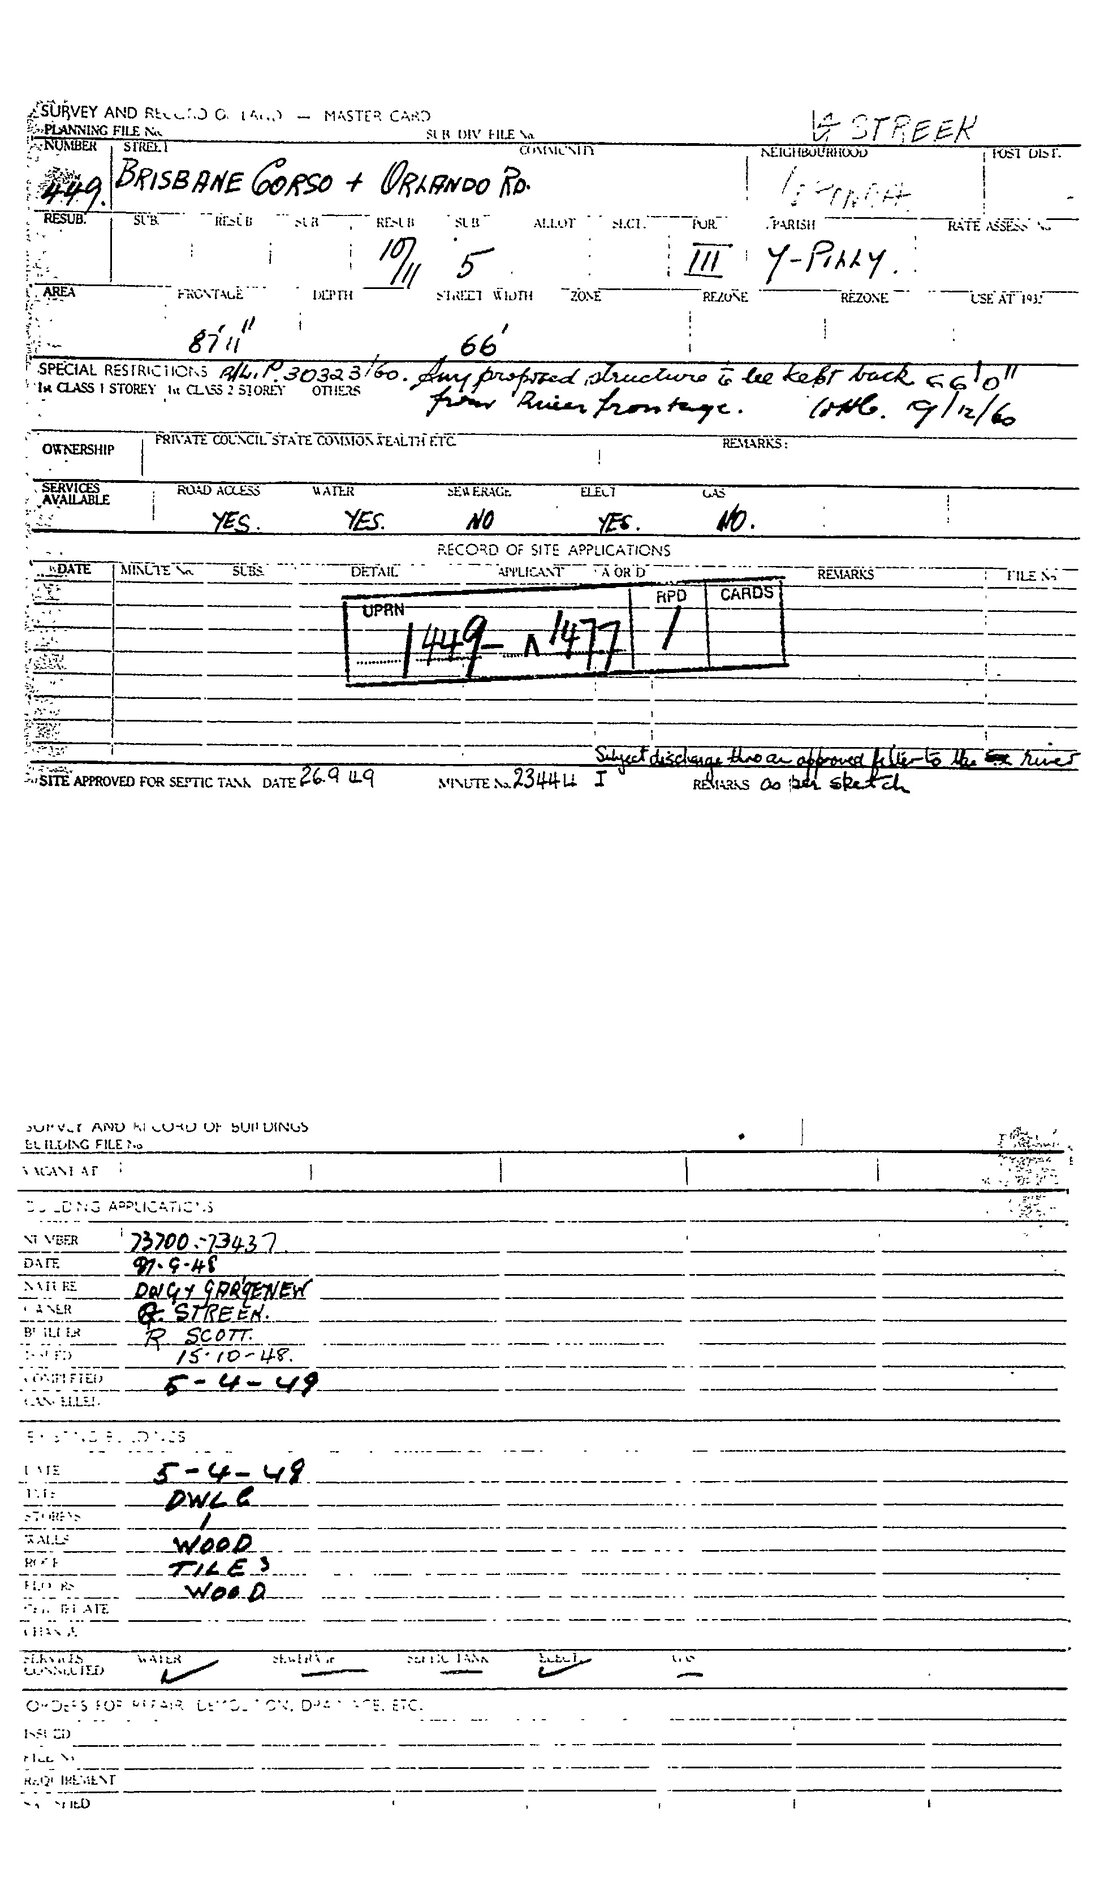 SURVEY AND RECORD OF LAND — MASTER CARD
PLANNING FILE No. SUB DIV FILE No. STREEK
NUMBER STREET COMMUNITY NEIGHBOURHOOD POST DIST.
449. BRISBANE CORSO + ORLANDO RD.
RESUB. SUB. RESUB SUB RESUB SUB ALLOT SECT. POR. PARISH RATE ASSESS No
10/11 5 III Y-PILLY.
AREA FRONTAGE DEPTH STREET WIDTH ZONE REZONE REZONE USE AT 193
87'11" 66'
SPECIAL RESTRICTIONS 30323/60. Any proposed structure to be kept back 66'0"
1st CLASS 1 STOREY 1st CLASS 2 STOREY OTHERS from River frontage. 19/12/60
OWNERSHIP PRIVATE COUNCIL STATE COMMONWEALTH ETC. REMARKS:
SERVICES AVAILABLE ROAD ACCESS WATER SEWERAGE ELECT GAS
YES. YES. NO YES. NO.
RECORD OF SITE APPLICATIONS
DATE MINUTE No. SUBS. DETAIL APPLICANT A OR D REMARKS FILE No
UPRN RPD CARDS
1449- 1477 1
Subject discharge thro an approved filter to the river
SITE APPROVED FOR SEPTIC TANK DATE 26.9 49 MINUTE No. 23444 I REMARKS as per sketch
SURVEY AND RECORD OF BUILDINGS
BUILDING FILE No
VACANT AT
BUILDING APPLICATIONS
NUMBER 73700-73437
DATE -9-48
NATURE
OWNER
BUILDER R SCOTT.
ISSUED 15-10-48.
COMPLETED 5-4-49
CANCELLED
EXISTING BUILDINGS
DATE 5-4-49
TYPE DWLG
STOREYS 1
WALLS WOOD
ROOF TILES
FLOORS WOOD
CERTIFICATE
CHANGE
SERVICES CONNECTED WATER ✓ SEWERAGE — SEPTIC TANK — ELECT. ✓ GAS —
ORDERS FOR REPAIR, DEMOLITION, DRAINAGE, ETC.
ISSUED
FILE No
REQUIREMENT
SATISFIED